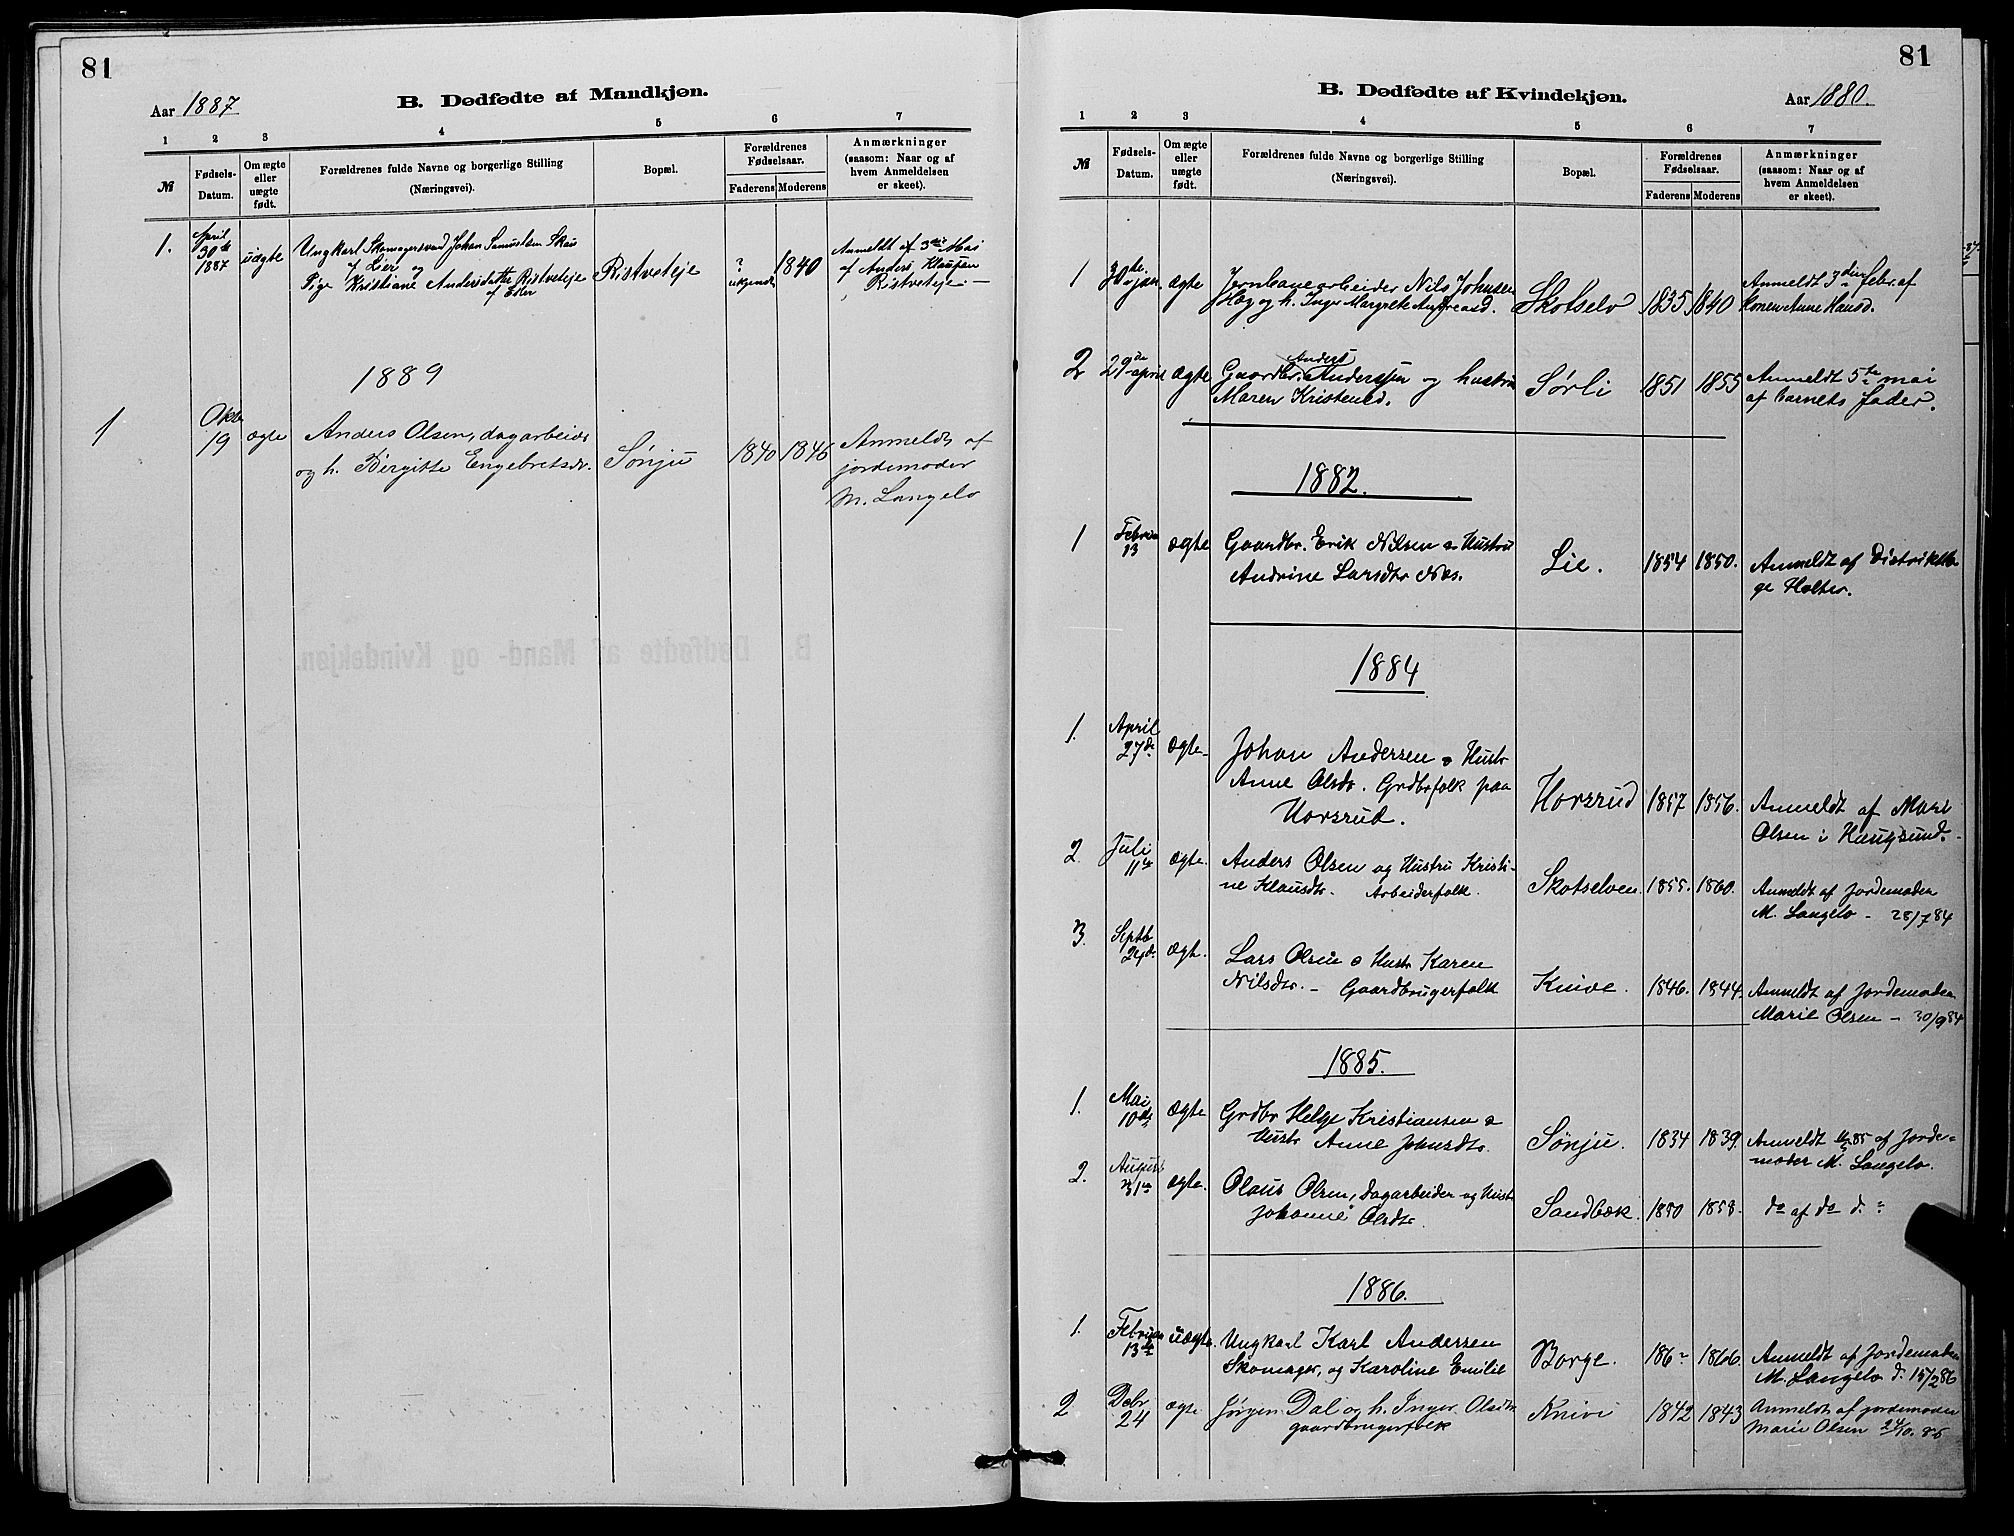 81
Aar 1887
B. Dødfødte af Mandkjøn.
1 2 3 4 5 6 7
№
Fødsels-Datum.
Om ægte eller uægte født.
Forældrenes fulde Navne og borgerlige Stilling
(Næringsvei).
Bopæl.
Forældrenes Fødselsaar.
Faderens Moderens
Anmærkninger
(saasom: Naar og af
hvem Anmeldelsen
er skeet).
1. April 30te 1887 uægte
Ungkarl Skomagersvend Johan Samuelsen Skus
af Lier og
Pige Kristiane Andersdatter Ristveteje
af Eker
Ristveteje ? ukjendt 1840
Anmeldt af 3die Mai
af Anders Klausen
Ristveteje. —
1889
1 Oktb 19 ægte
Anders Olsen, dagarbeider
og h. Birgitte Engebretsdr.
Sønju 1840 1846
Anmeldt af
jordemoder
M. Langelo
81
B. Dødfødte af Kvindekjøn.
Aar 1880.
1 2 3 4 5 6 7
№
Fødsels-Datum.
Om ægte eller uægte født.
Forældrenes fulde Navne og borgerlige Stilling
(Næringsvei).
Bopæl.
Forældrenes Fødselsaar.
Faderens Moderens
Anmærkninger
(saasom: Naar og af
hvem Anmeldelsen
er skeet).
1 30te jan. ægte
Jernbanearbeider Nils Johnsen
Hog og h. Inger Margrete Andreasd.
Skotselv 1835 1840
Anmeldt 3die febr. af
konen Anne Hansd.
2 29de april ægte
Gaardbr. Anders Anderssen og hustru
Maren Kristensd.
Sørli 1851 1855
Anmeldt 5te mai
af barnets fader.
1882.
1 Februar 13 ægte
Gaardbr. Erik Nilsen & Hustru
Andrine Larsdtr Næs.
Lie. 1854 1850.
Anmeldt af Distriktslæ
ge Holter.
1884
1. April 27de ægte
Johan Andersen & Hustr
Anne Olsdr. Grdbrfolk paa
Horsrud.
Horsrud 1857 1856.
Anmeldt af Mari
Olsen i Haugsund.
2. Juli 11te ægte.
Anders Olsen og Hustru Kristi-
ne Klausdtr. Arbeiderfolk.
Skotselven. 1855. 1860.
Anmeldt af Jordemoder
M. Langelo - 28/7 84
3. Septb 24de ægte.
Lars Olsen & Hustr Karen
Nilsdtr. - Gaardbrugerfolk
Knive. 1846. 1844.
Anmeldt af Jordemoder
Marie Olsen - 30/9 84
1885.
1. Mai 10de ægte
Grdbr Helge Kristiansen &
Hustr Anne Johnsdtr.
Sønju. 1834 1839.
Anmeldt 85 af Jorde-
moder M. Langelo.
2. August 31te ægte.
Olaus Olsen, Dagarbeider og Hustr
Johanne Olsdtr.
Sandbæk. 1850 1858.
do af do d. "
1886.
1. Februar 13de uægte.
Ungkarl Karl Andersen
Skomager, og Karoline Emilie
Borge. 186- 1866.
Anmeldt af Jordemoder
M. Langelo d. 15/2 86
2 Debr 24 ægte
Jørgen Dal og h. Inger Olsdtr
gaardbrugerfolk
Knivi 1842 1843
Anmeldt af jordemoder
Marie Olsen